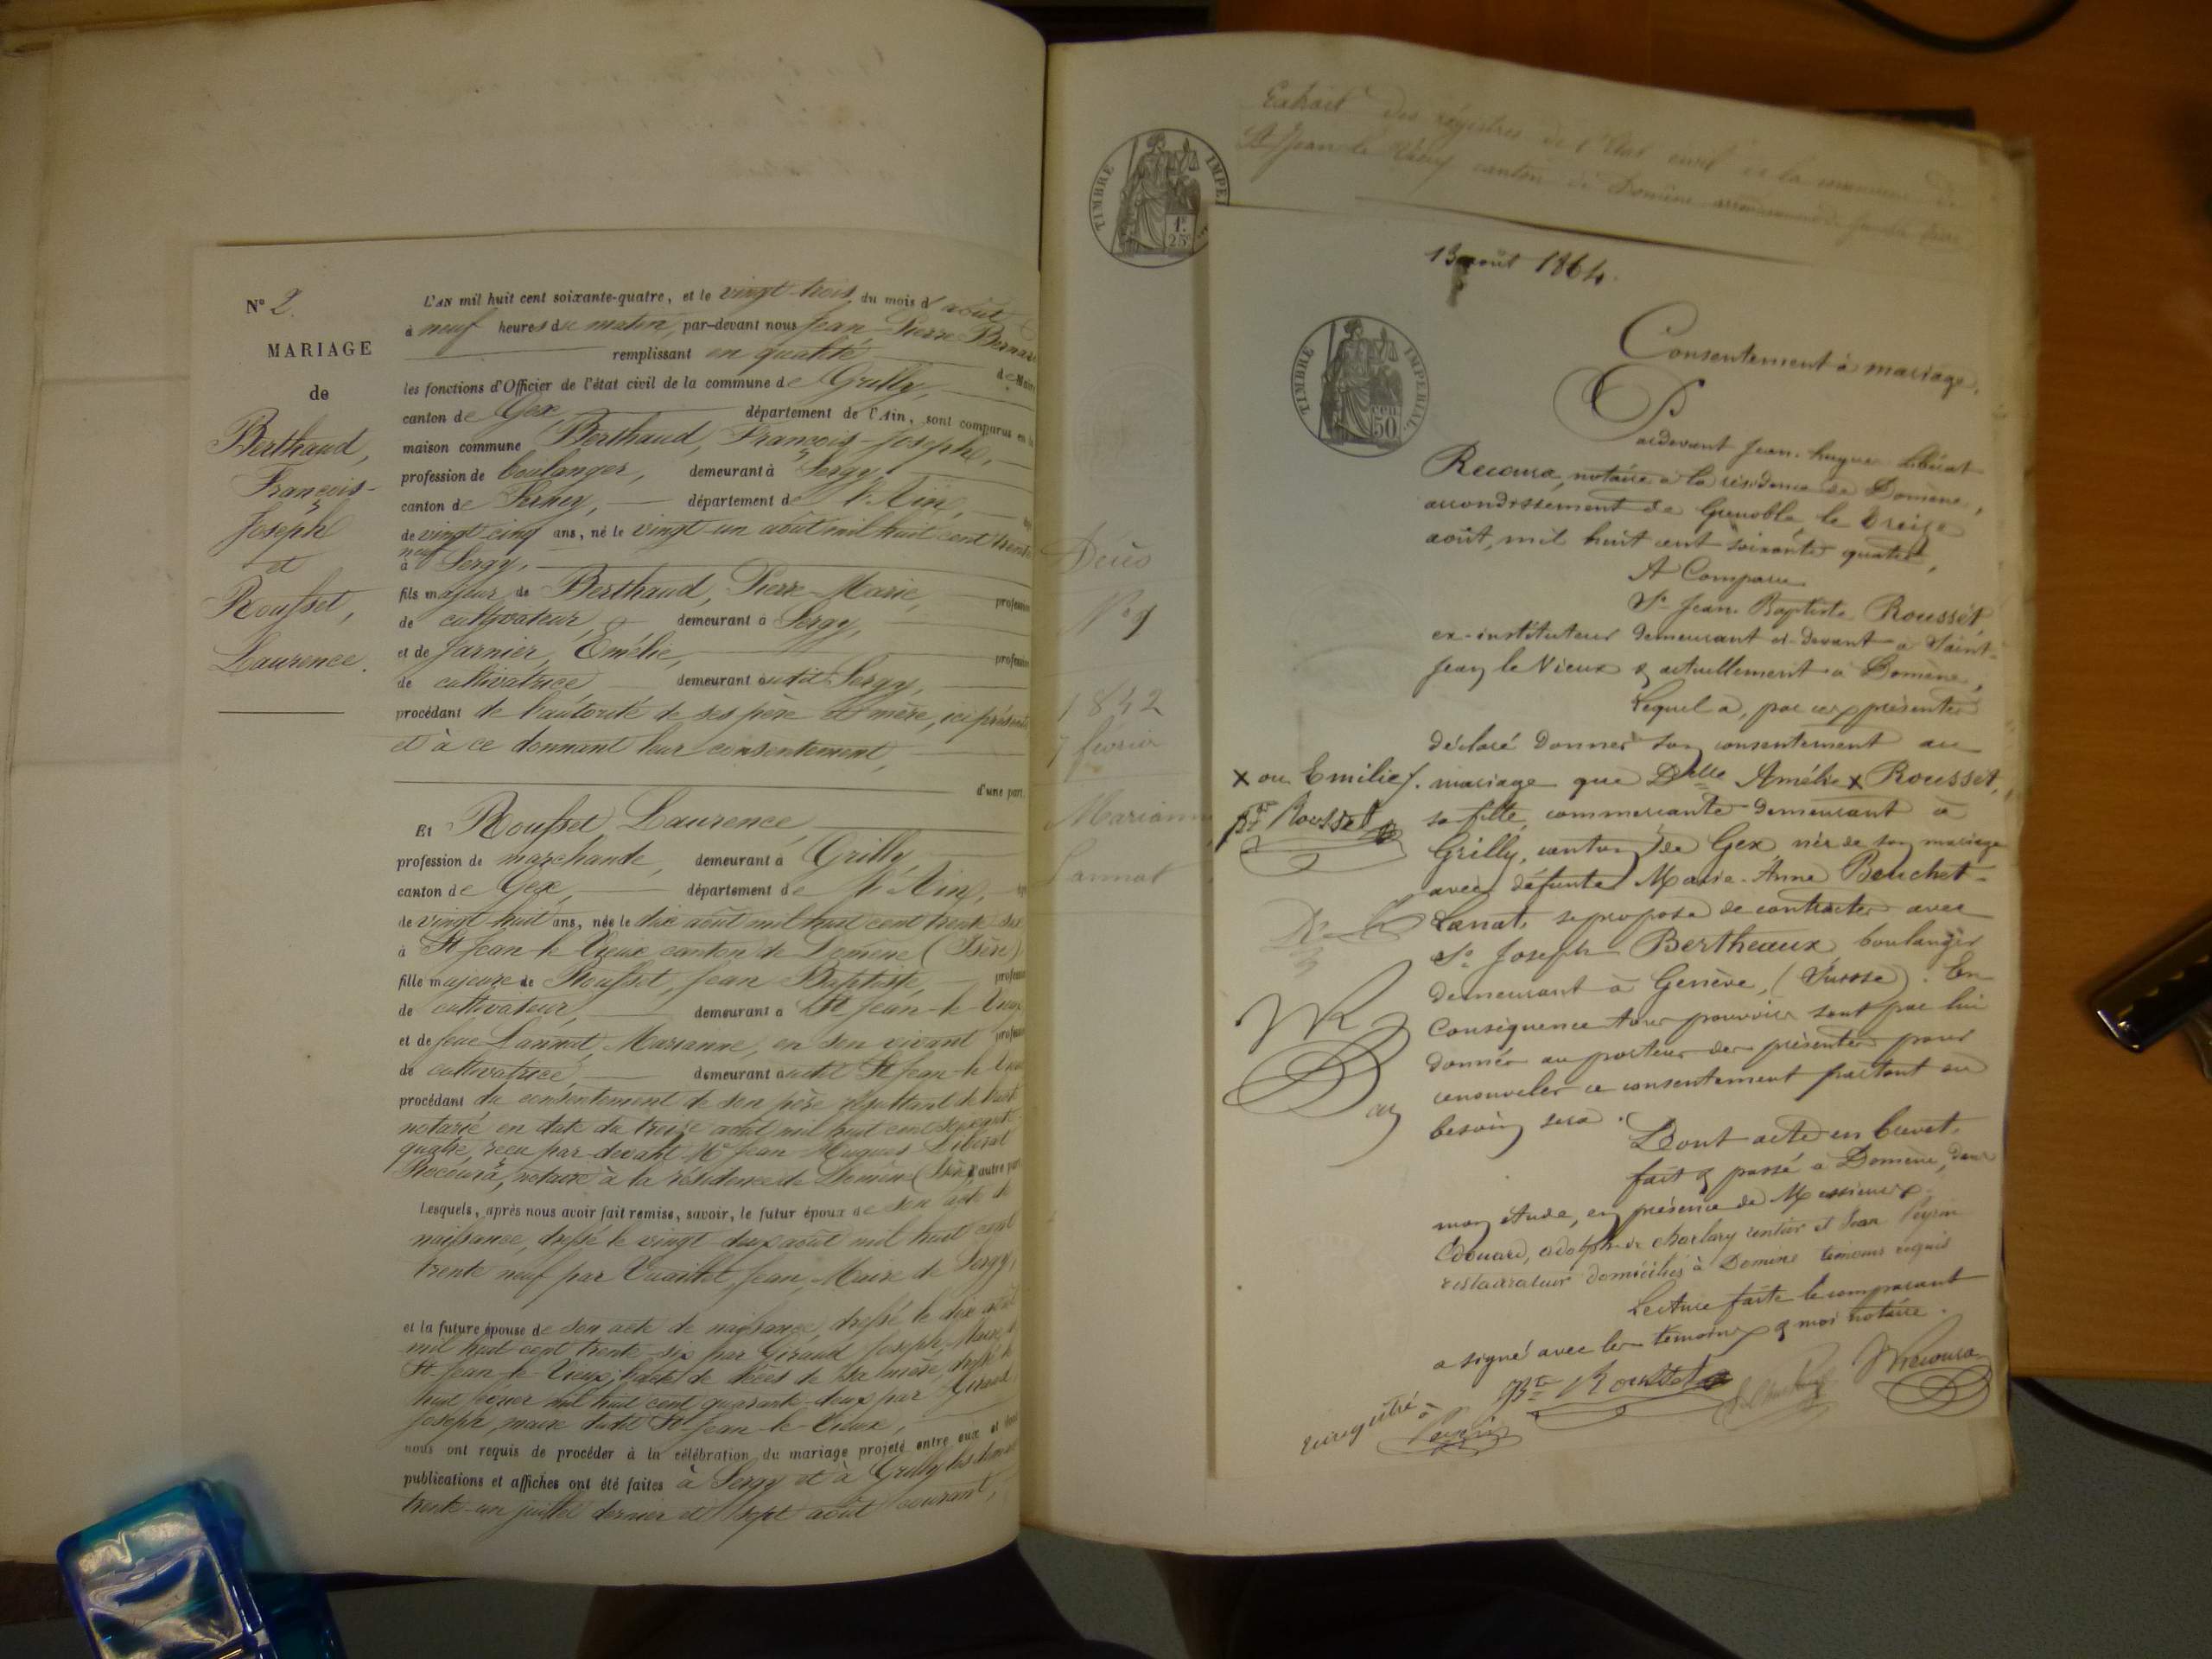 N° 2.
MARIAGE
de
Berthaud,
François-
Joseph
et
Rousset,
Laurence.
L'AN mil huit cent soixante-quatre, et le vingt-trois du mois d'août
à neuf heures du matin, par-devant nous Jean-Pierre Bernard
remplissant en qualité de Maire
les fonctions d'Officier de l'état civil de la commune de Grilly,
canton de Gex, département de l'Ain, sont comparus en la
maison commune Berthaud, François-Joseph,
profession de boulanger, demeurant à Sergy,
canton de Ferney, département de l'Ain,
de vingt-cinq ans, né le vingt-un août mil huit cent trente
neuf
à Sergy,
fils majeur de Berthaud, Pierre-Marie, profession
de cultivateur, demeurant à Sergy,
et de Jarnier, Emélie, profession
de cultivatrice demeurant audit Sergy,
procédant de l'autorité de ses père et mère, ici présents
et à ce donnant leur consentement,
d'une part.
Et Rousset Laurence,
profession de marchande, demeurant à Grilly,
canton de Gex, département de l'Ain,
de vingt huit ans, née le dix août mil huit cent trente six
à St Jean-le-Vieux canton de Domène (Isère)
fille majeure de Rousset, Jean Baptiste, profession
de cultivateur, demeurant à St Jean-le-Vieux
et de feue Lannat, Marianne, en son vivant profession
de cultivatrice, demeurant audit St Jean-le-Vieux
procédant du consentement de son père résultant de l'acte
notarié en date du treize août mil huit cent soixante
quatre, reçu par-devant Me Jean-Hugues Libérat
Recoura, notaire à la résidence de Domène (Isère) d'autre part
Lesquels, après nous avoir fait remise, savoir, le futur époux de son acte de
naissance, dressé le vingt-deux août mil huit cent
trente neuf par Vuaillet, Jean, Maire de Sergy,
et la future épouse de son acte de naissance, dressé le dix août
mil huit cent trente-six par Giraud Joseph, Maire de
St Jean-le-Vieux, l'acte de décès de sa mère, dressé le
huit février mil huit cent quarante-deux par Giraud,
Joseph, maire dudit St Jean-le-Vieux,
nous ont requis de procéder à la célébration du mariage projeté entre eux et dont
publications et affiches ont été faites à Sergy et à Grilly les dimanches
trente-un juillet dernier et sept août courant,
Extrait des régistres de l'Etat civil de la commune de
St Jean le Vieux canton de Domène
TIMBRE IMPERIAL
1F 25C
Décès
N° 9
1842
7 février
Marianne
Lannat
13 août 1864.
TIMBRE IMPERIAL
50 CEN
Consentement à mariage.
Pardevant Jean-hugues Libérat
Recoura, notaire à la résidence de Domène,
arrondissement de Grenoble, le treize
août, mil huit cent soixante quatre,
A Comparu
Sr Jean-Baptiste Rousset,
ex-instituteur demeurant ci-devant à Saint-
Jean le Vieux & actuellement à Domène,
Lequel a, par ces présentes
déclaré donner son consentement au
mariage que Delle Amélie x Rousset,
x ou Emilie /.
Bte Rousset
sa fille, commerçante demeurant à
Grilly, canton de Gex née de son mariage
avec défunte Marie-Anne Beuchet-
Lanat, se propose de contracter avec
Sr Joseph Bertheaux boulanger
demeurant à Genève, (Suisse). En
conséquence tous pouvoirs sont par lui
donnés au porteur des présentes pour
renouveler ce consentement partout où
besoin sera.
Dont acte en brevet,
fait & passé à Domène, dans
mon étude, en présence de Messieurs
Edouard, adolphe de charlary rentier et Jean Peyrin
restaurateur domiciliés à Domène témoins requis
Lecture faite le comparant
a signé avec les témoins & moi notaire.
Bte Rousset
Recoura
Peyrin
Enregistré à